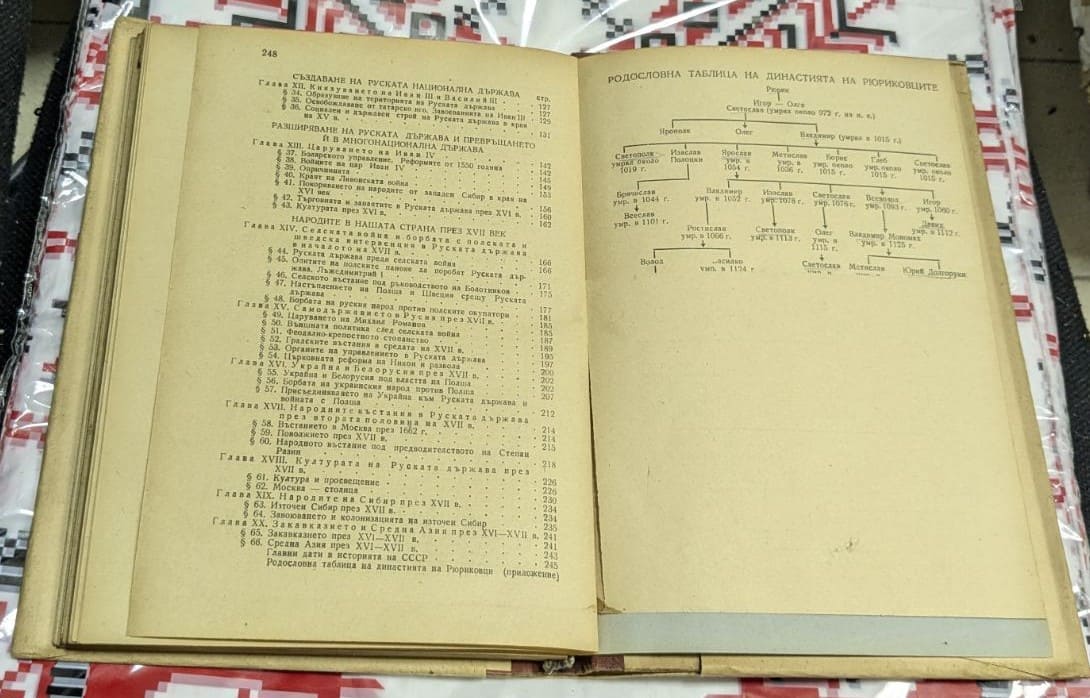 248
СЪЗДАВАНЕ НА РУСКАТА НАЦИОНАЛНА ДЪРЖАВА
стр.
Глава XII. Княжуването на Иван III и Василий III . . 127
§ 34. Образуване на територията на Руската държава . . 127
§ 35. Освобождаване от татарско иго. Завоеванията на Иван III . 129
§ 36. Социален и държавен строй на Руската държава в края
на XV в. . . . 131
РАЗШИРЯВАНЕ НА РУСКАТА ДЪРЖАВА И ПРЕВРЪЩАНЕТО
Ѝ В МНОГОНАЦИОНАЛНА ДЪРЖАВА
Глава XIII. Царуването на Иван IV . . . 142
§ 37. Болярското управление. Реформите от 1550 година . . 142
§ 38. Войните на цар Иван IV . . . 145
§ 39. Опричнината . . . 149
§ 40. Краят на Ливонската война . . . 153
§ 41. Покоряването на народите от западен Сибир в края на
XVI век . . . 156
§ 42. Търговията и занаятите в Руската държава през XVI в. . 160
§ 43. Културата през XVI в. . . . 162
НАРОДИТЕ В НАШАТА СТРАНА ПРЕЗ XVII ВЕК
Глава XIV. Селската война и борбата с полската и
шведска интервенция в Руската държава
в началото на XVII в. . . . 166
§ 44. Руската държава преди селската война . . . 166
§ 45. Опитите на полските панове да поробят Руската дър-
жава. Лъжедимитрий I . . . 171
§ 46. Селското въстание под ръководството на Болотников . . 175
§ 47. Настъплението на Полша и Швеция срещу Руската
държава . . . 177
§ 48. Борбата на руския народ против полските окупатори . . 181
Глава XV. Самодържавието в Русия през XVII в. . . 185
§ 49. Царуването на Михаил Романов . . . 185
§ 50. Външната политика след селската война . . . 187
§ 51. Феодално-крепостното стопанство . . . 189
§ 52. Градските въстания в средата на XVII в. . . . 195
§ 53. Органите на управлението в Руската държава . . . 197
§ 54. Църковната реформа на Никон и разкола . . . 200
Глава XVI. Украйна и Белорусия през XVII в. . . . 202
§ 55. Украйна и Белорусия под властта на Полша . . . 202
§ 56. Борбата на украинския народ против Полша . . . 207
§ 57. Присъединяването на Украйна към Руската държава и
войната с Полша . . . 212
Глава XVII. Народните въстания в Руската държава
през втората половина на XVII в. . . . 214
§ 58. Въстанието в Москва през 1662 г. . . . 214
§ 59. Поволжието през XVII в. . . . 215
§ 60. Народното въстание под предводителството на Степан
Разин . . . 218
Глава XVIII. Културата на Руската държава през
XVII в. . . . 226
§ 61. Култура и просвещение . . . 226
§ 62. Москва — столица . . . 230
Глава XIX. Народите на Сибир през XVII в. . . . 234
§ 63. Източен Сибир през XVII в. . . . 234
§ 64. Завоюването и колонизацията на източен Сибир . . 235
Глава XX. Закавказието и Средна Азия през XVI—XVII в. 241
§ 65. Закавказието през XVI—XVII в. . . . 241
§ 66. Средна Азия през XVI—XVII в. . . . 243
Главни дати в историята на СССР . . . 245
Родословна таблица на династията на Рюриковци (приложение)
РОДОСЛОВНА ТАБЛИЦА НА ДИНАСТИЯТА НА РЮРИКОВЦИТЕ
Рюрик
Игор — Олга
Светослав (умрял около 972 г. из н. е.)
Ярополк Олег Владимир (умрял в 1015 г.)
Светополк умрял около 1019 г.
Изяслав Полоцки
Ярослав умр. в 1054 г.
Мстислав умр. в 1036 г.
Борис умр. около 1015 г.
Глеб умр. около 1015 г.
Светослав умр. около 1015 г.
Брячислав умр. в 1044 г.
Владимир умр. в 1052 г.
Изяслав умр. 1078 г.
Светослав умр. 1076 г.
Всеволод умр. 1093 г.
Игор умр. 1060 г.
Всеслав умр. в 1101 г.
Ростислав умр. в 1066 г.
Светополк умр. в 1113 г.
Олег умр. в 1115 г.
Владимир Мономах умр. в 1125 г.
Давид умр. в 1112 г.
Волод
асилко умр. в 1124 г.
Светослав
Мстислав
Юрий Долгоруки